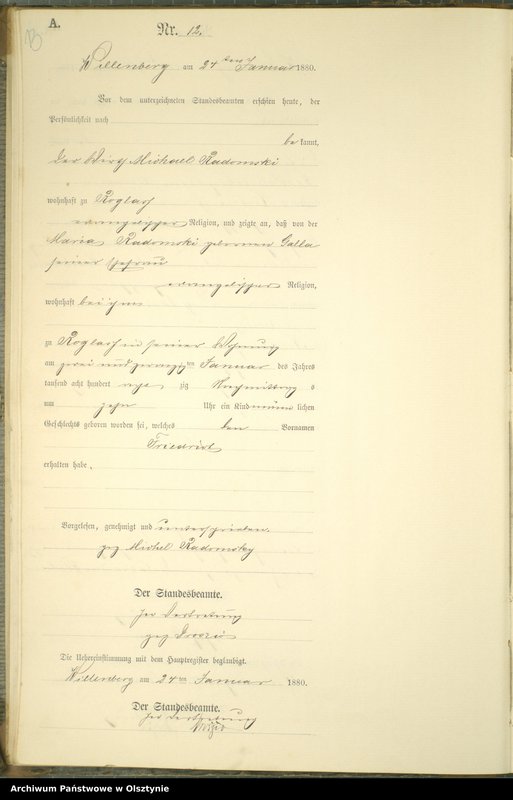 B
A.
Nr. 12.
Willenberg am 24ten Januar 1880.
Vor dem unterzeichneten Standesbeamten erschien heute, der
Persönlichkeit nach
bekannt,
der Wirth Michael Radomski
wohnhaft zu Roglach
evangelischer Religion, und zeigte an, daß von der
Maria Radomski geborenen Galla
seiner Ehefrau
evangelischer Religion,
wohnhaft bei ihm
zu Roglach in seiner Wohnung
am zwei und zwanzigten Januar des Jahres
tausend acht hundert acht zig Vormittags
um zehn Uhr ein Kind männlichen
Geschlechts geboren worden sei, welches den Vornamen
Friedrich
erhalten habe.
Vorgelesen, genehmigt und unterschrieben.
gez Michel Radomsky
Der Standesbeamte.
In Vertretung
gez
Die Uebereinstimmung mit dem Hauptregister beglaubigt.
Willenberg am 24ten Januar 1880.
Der Standesbeamte.
In Vertretung
Archiwum Państwowe w Olsztynie